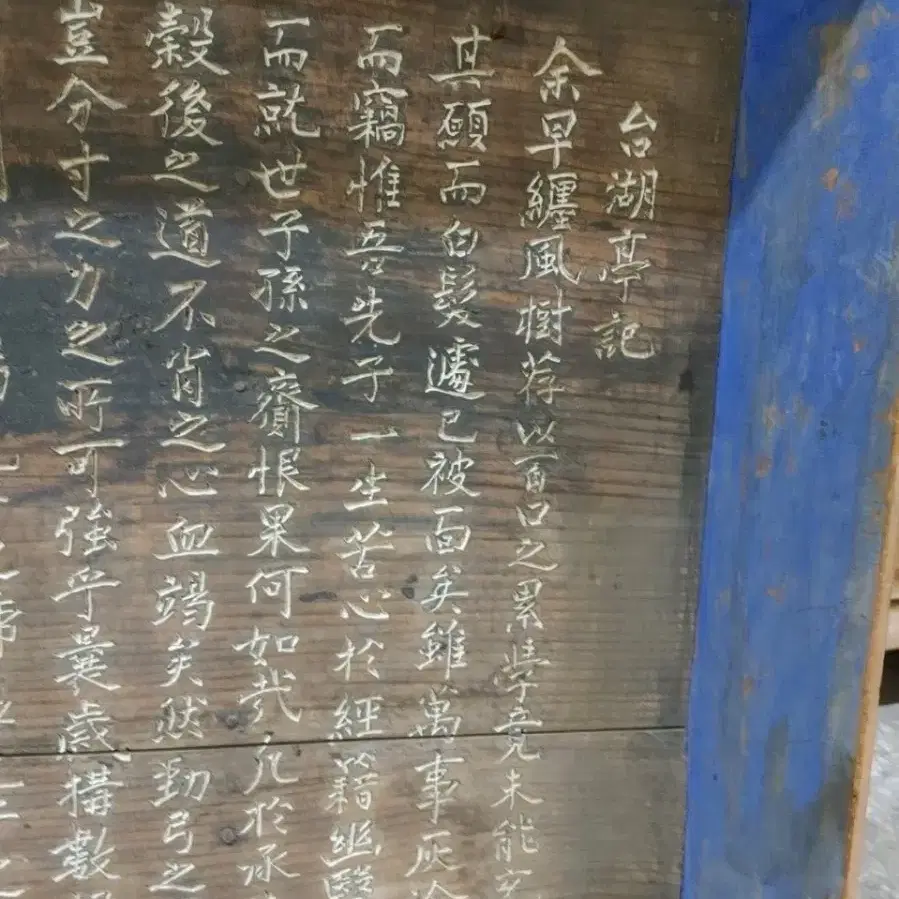 台湖亭記
余早纏風樹荐以百口之累學竟未能
其願而白髮遽已被面矣雖萬事灰冷
而竊惟吾先子一生苦心於經籍
而就世子孫之齎恨果何如哉凡於承
穀後之道不肖之心血竭矣然勤弓之
豈分寸之力之所可強乎曩歲構數